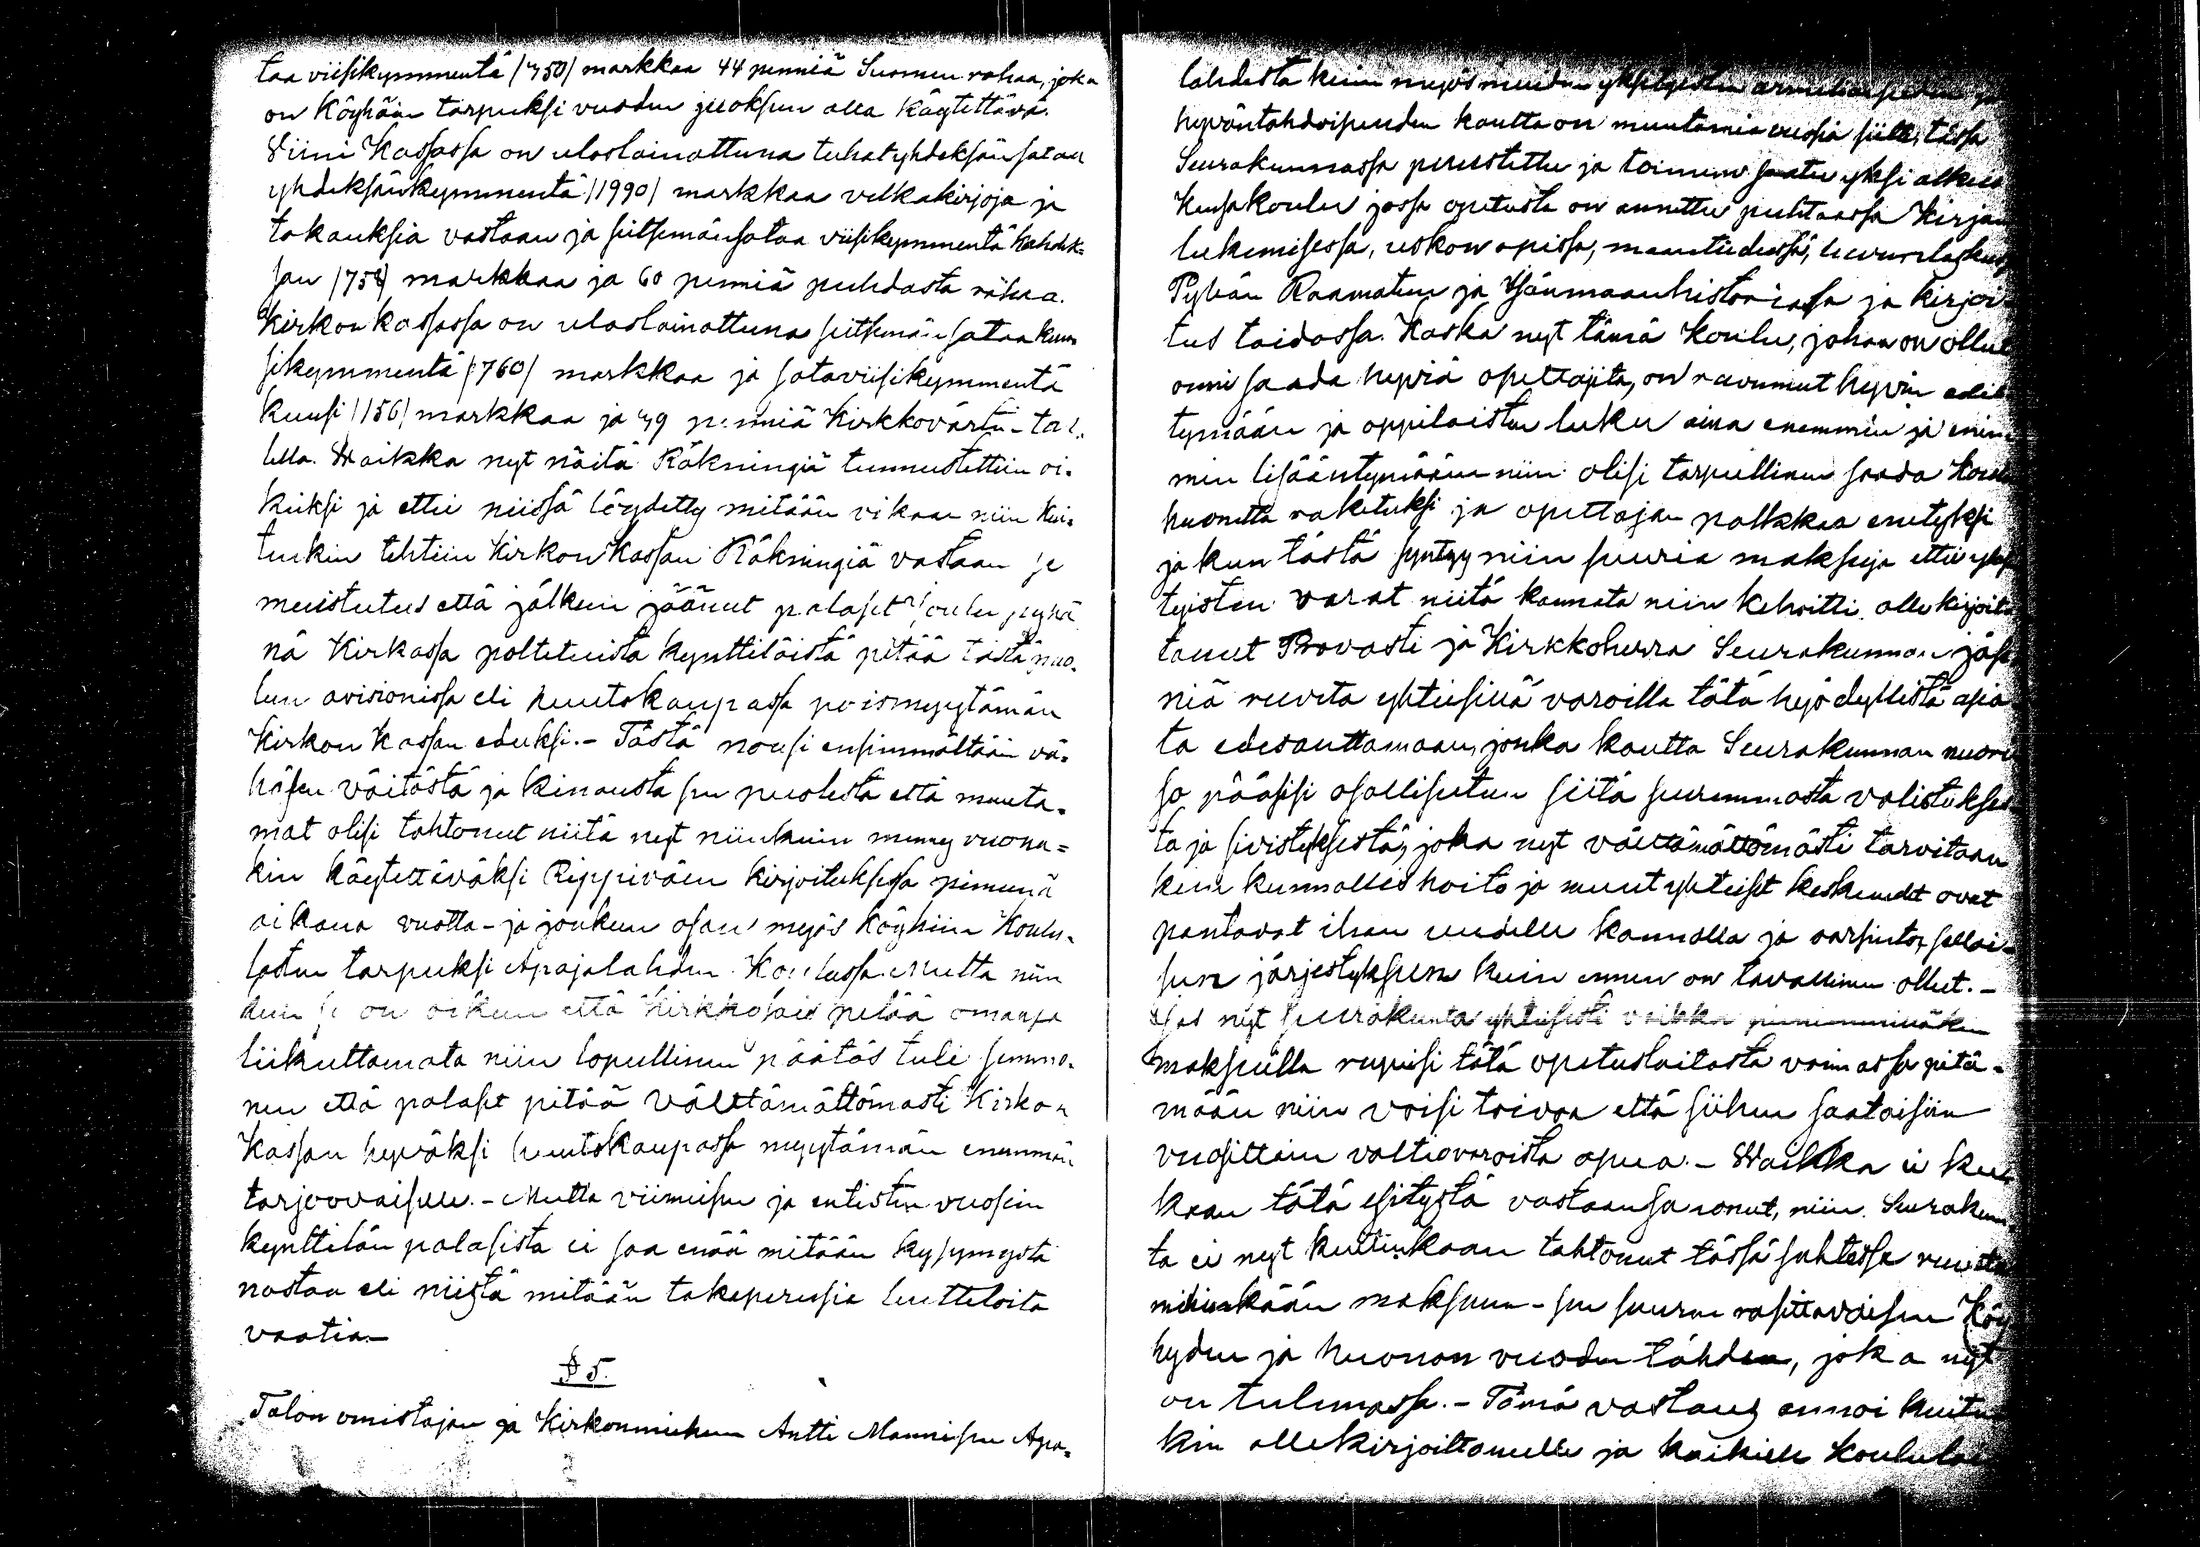 taa viisikymmentä /750/ markkaa 44 penniä Suomen rahaa, joka
on Köyhäin tarpeksi vuoden juoksun alla käytettävä.
Viini Kassassa on uloslainattuna tuhatyhdeksänsataa
yhdeksänkymmentä /1990/ markkaa velkakirjoja ja
takauksia vastaan ja seitsemänsataa viisikymmentä kahdek-
san /758/ markkaa ja 60 penniä puhdasta rahaa.
Kirkon kassassa on uloslainattuna seitsemänsataa kuu-
sikymmentä /760/ markkaa ja sataviisikymmentä
kuusi /156/ markkaa ja 79 penniä Kirkkovärtin ta-
lella. Waikka nyt näitä Räkningiä tunnustettiin oi-
kiksi ja ettei niissä löydetty mitään vikaa niin kui-
tenkin tehtiin Kirkon Kassan Räkningiä vastaan se
muistutus että jälken jäänut palaset Joulu pyhä
nä Kirkossa poltetuista kynttilöistä pitää tästä puo-
len avisionissa eli huutokaupassa poismyytämän
Kirkon Kassan eduksi. - Tästä nousi ensimmältään vä-
häsen väitöstä ja kinausta sen puolesta että muuta-
mat olisi tahtonut niitä nyt niinkuin menny vuona-
kin käytettäväksi Rippiväen kirjoituksessa pimenä
aikana vuotta - ja jonkun osan myös köyhiin Koulu-
lasten tarpeksi Apajalahden Koulussa. Mutta niin
kuin se on oikeen että Kirkko sais pitää omansa
liikuttamata niin lopullinen päätös tuli semmo-
nen että palaset pitää välttämättömästi Kirkon
Kassan hyväksi huutokaupassa myytämän enemmän
tarjoovaisulle. - Mutta viimeisen ja entisten vuosein
kynttilän palasista ei saa enää mitään kysymystä
nostaa eli niistä mitään takeperusia luetteloita
vaatia. -
§ 5.
Talon omistajan ja Kirkonmiehen Antti Mannisen Apa-
lahdesta kuin myös muiden yksityisten armeliaisuden ja
hyväntahdoisuuden kautta on muutamia vuosia siitä, tässä
Seurakunnassa perustettu ja toimeen saatu yksi alkeis
Kansakoulu jossa opetusta on annettu puhtaassa Kirjan
lukemisessa, uskon opissa, maantiedessä, luvunlaskussa
Pyhän Raamatun ja Isänmaanhistoriassa ja kirjoi-
tus taidossa. Koska nyt tämä Koulu, johon on ollut
onni saada hyviä opettajita, on ravunnut hyvin edis
tymään ja oppilaisten luku aina enemmin ja enem
min lisääntymään niin olisi tarpeellinen saada koulu
huonetta raketuksi ja opettajan palkkaa enetyksi
ja kun tästä syntyy niin suuria maksuja ettei yksi
tyisten varat niitä kannata niin kehoitti allekirjoit
tanut Provasti ja Kirkkoherra Seurakunnan jäse
niä ruveta yhteisillä varoilla tätä hyödyllistä asia
ta edesauttamaan, jonka kautta Seurakunnan nuori
so pääsisi osallisutun siitä suuremmasta valistukses
ta ja sivistyksestä, joka nyt välttämättömästi tarvitaan
kun kunnallishoito ja muut yhteiset keskeudet ovat
pantavat ihan uudelle kannalle ja varsinto, sellai-
seen järjestykseen kuin ennen on tavallinen ollut. -
Jos nyt seurakunta yhteisesti vaikka pienemmilläkin
maksuilla rupeisi tätä opetuslaitosta voimassa pitä-
mään niin voisi toivoa että siihen saataisiin
vuosittain valtiovaroista apua. - Waikka ei ku
kaan tätä esitystä vastaansanonut, niin Seurakun
ta ei nyt kuitenkaan tahtonut tässä suhtessa ruveta
mihinkään maksuun - sen suuren rasittavaisen Köy
hyden ja huonon vuoden tähden, joka nyt
on tulemassa. - Tämä vastaus annoi kuiten
kin allekirjoittaneelle ja kaikille koululai